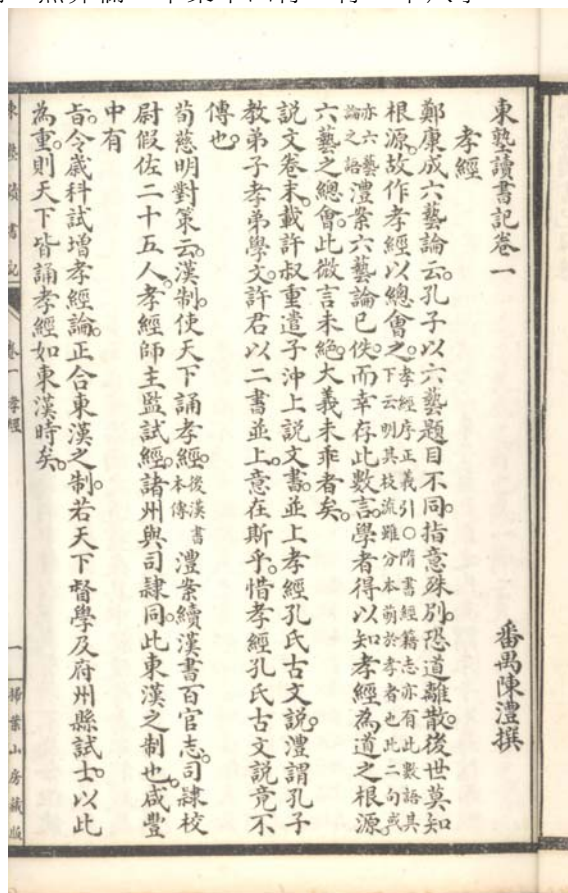 東塾讀書記卷一
番禺陳澧撰
孝經
鄭康成六藝論云。孔子以六藝題目不同。指意殊別。恐道離散。後世莫知
根源。故作孝經以總會之。孝經序正義引○隋書經籍志亦有此數語其
下云明其枝流雖分本萌於孝者也此二句或
亦六藝
論之語澧案六藝論已佚。而幸存此數言。學者得以知孝經為道之根源。
六藝之總會。此微言未絕。大義未乖者矣。
説文卷末。載許叔重遣子沖上説文書。並上孝經孔氏古文説。澧謂孔子
教弟子孝弟學文。許君以二書並上。意在斯乎。惜孝經孔氏古文説竟不
傳也。
荀慈明對策云。漢制。使天下誦孝經。後漢書
本傳澧案續漢書百官志。司隸校
尉假佐二十五人。孝經師主監試經。諸州與司隸同。此東漢之制也。咸豐
中有
旨。令歲科試增孝經論。正合東漢之制。若天下督學及府州縣試士。以此
為重。則天下皆誦孝經如東漢時矣。
東塾讀書記
卷一 孝經
一
掃葉山房藏版